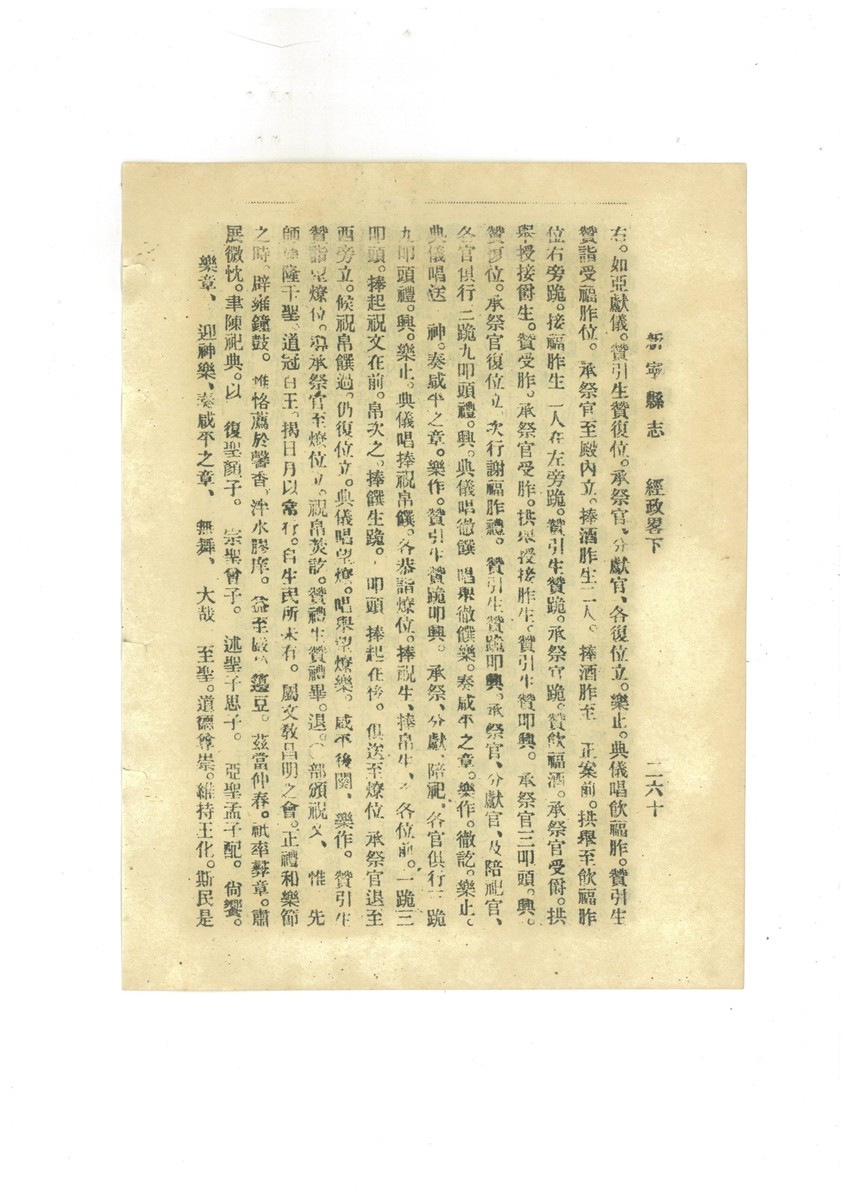 新寧縣志　經政畧下　二六十
右。如亞獻儀。贊引生贊復位。承祭官、分獻官、各復位立。樂止。典儀唱飲福胙。贊引生
贊詣受福胙位。承祭官至殿內立。捧酒胙生二人。捧酒胙至　正案前。拱舉至飲福胙
位右旁跪。接福胙生二人在左旁跪。贊引生贊跪。承祭官跪。贊飲福酒。承祭官受爵。拱
舉授接爵生。贊受胙。承祭官受胙。拱舉授接胙生。贊引生贊叩興。承祭官三叩頭。興。
贊復位。承祭官復位立。次行謝福胙禮。贊引生贊跪叩興。承祭官、分獻官、及陪祀官、
各官俱行三跪九叩頭禮。興。典儀唱徹饌　唱舉徹饌樂。奏咸平之章。樂作。徹訖。樂止。
典儀唱送　神。奏咸平之章。樂作。贊引生贊跪叩興。承祭、分獻、陪祀、各官俱行三跪
九叩頭禮。興。樂止。典儀唱捧祝帛饌。各恭詣燎位。捧祝生、捧帛生、各位前。一跪三
叩頭。捧起祝文在前。帛次之。捧饌生跪。叩頭　捧起在後。俱送至燎位　承祭官退至
西旁立。候祝帛饌過。仍復位立。典儀唱望燎。唱舉望燎樂。咸平後闋、樂作。贊引生
贊詣望燎位。導承祭官至燎位立。祝帛焚訖。贊禮生贊禮畢。退。部頒祝文、惟　先
師　隆千聖、道冠百王。揭日月以常行。自生民所未有。屬文敎昌明之會。正禮和樂節
之時、辟雍鐘鼓。惟恪薦於馨香。泮水膠庠。益至嚴於籩豆。茲當仲春。祇率彝章。肅
展微忱。聿陳祀典。以　復聖顏子。　宗聖曾子。　述聖子思子。　亞聖孟子配。尙饗。
樂章、　迎神樂、奏咸平之章、　無舞、　大哉　至聖。道德尊崇。維持王化。斯民是